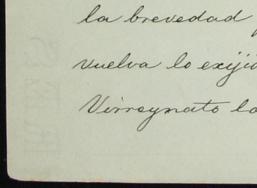 la brevedad
vuelva lo exijie
Virreynato la